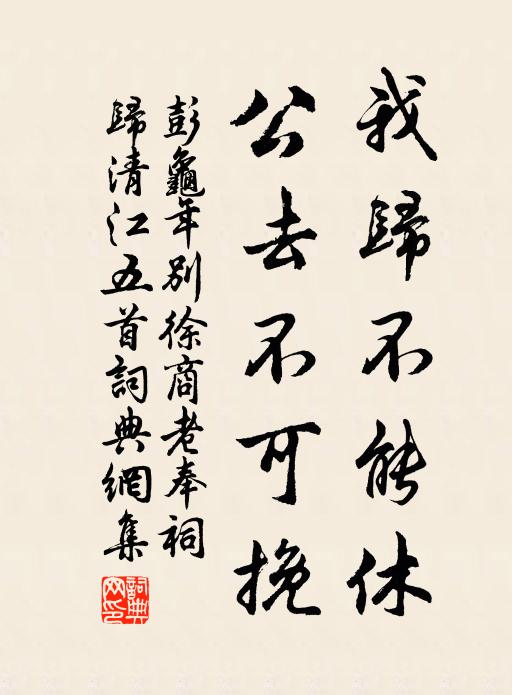 我歸不能休
公去不可挽
彭龜年別徐商老奉祠
歸清江五首詞典網集
詞典
网印